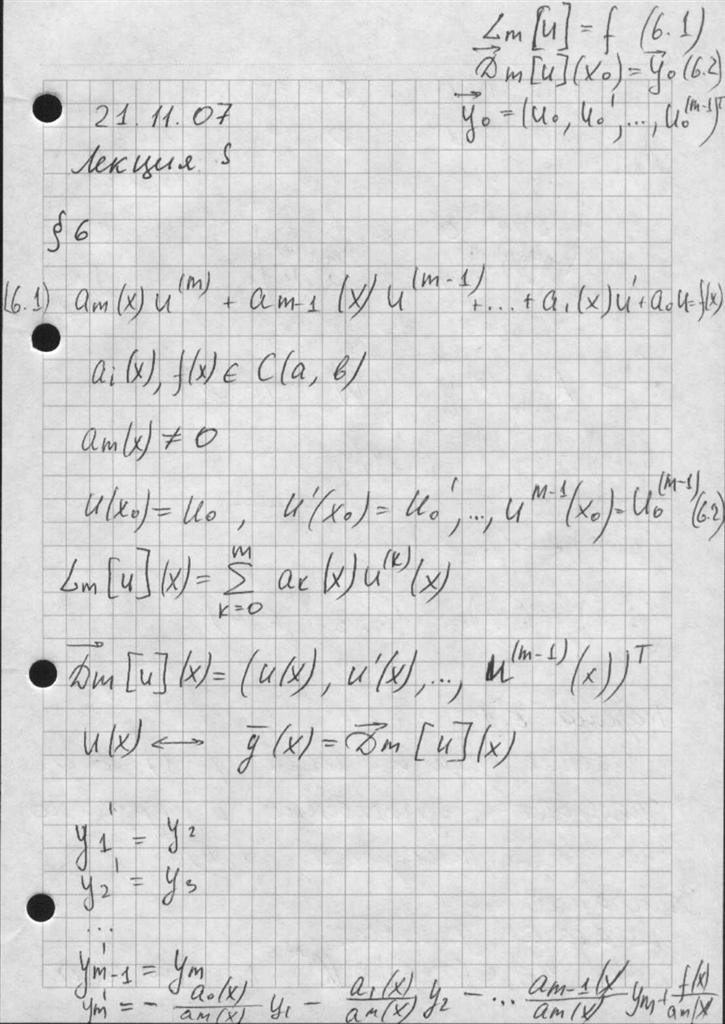 Lm[u] = f (6.1)
D⃗m[u](x₀) = y⃗₀ (6.2)
y⃗₀ = (u₀, u₀', ..., u₀^(m-1))^T
21.11.07
Лекция
§ 6
(6.1) am(x)u^(m) + am-1(x)u^(m-1) + ... + a₁(x)u' + a₀u = f(x)
ai(x), f(x) ∈ C(a, в)
am(x) ≠ 0
u(x₀) = u₀, u'(x₀) = u₀', ..., u^m-1(x₀) = u₀^(m-1) (6.2)
Lm[u](x) = ∑_{k=0}^{m} aк(x)u^(k)(x)
D⃗m[u](x) = (u(x), u'(x), ..., u^(m-1)(x))^T
u(x) ⟷ ȳ(x) = D⃗m[u](x)
y₁' = y₂
y₂' = y₃
...
y'm-1 = ym
y'm = - a₀(x)/am(x) y₁ - a₁(x)/am(x) y₂ - ... am-1(x)/am(x) ym + f(x)/am(x)